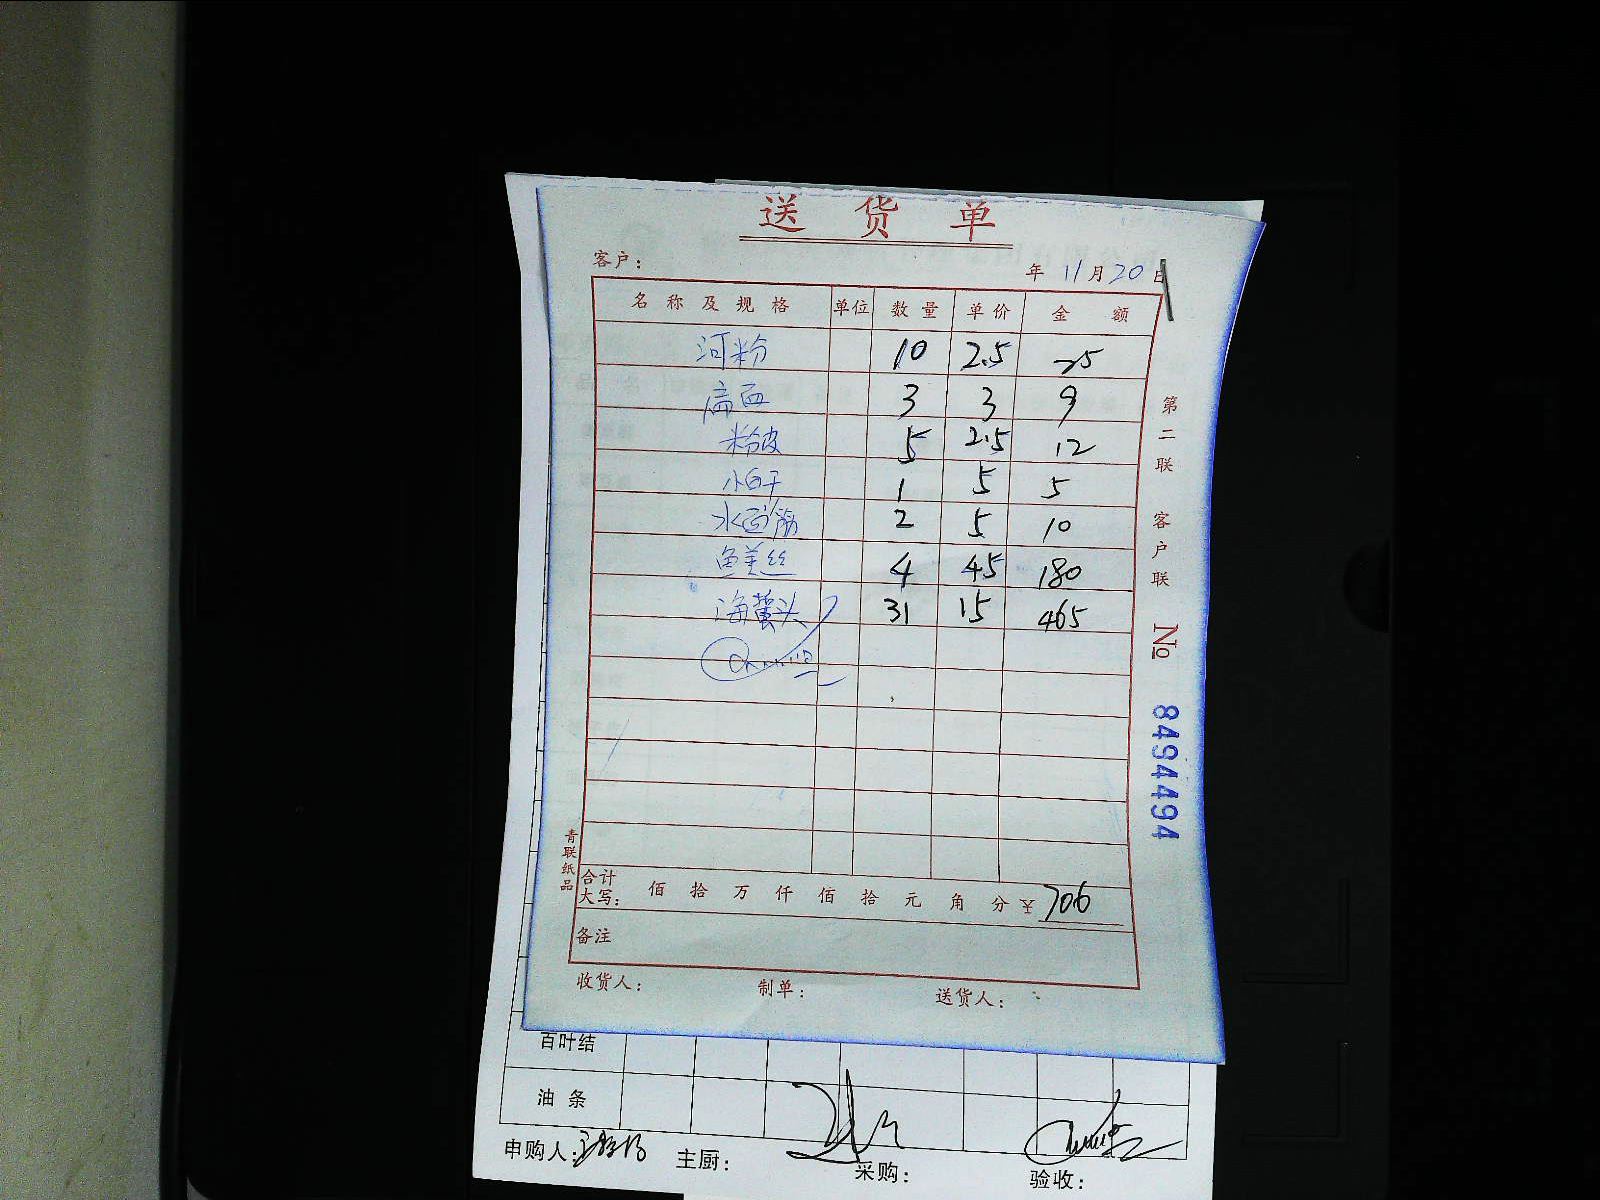 送 货 单
客户： 年 11 月 20 日
名 称 及 规 格 单位 数 量 单 价 金 额
河粉 10 2.5 25
扁面 3 3 9
粉皮 5 2.5 12
小白干 1 5 5
水面筋 2 5 10
鱼羊丝 4 45 180
海蜇头 31 15 465
第二联 客户联
№ 8494494
青联纸品
合计大写： 佰 拾 万 仟 佰 拾 元 角 分 ¥ 706
备注
收货人： 制单： 送货人：
百叶结
油 条
申购人： 主厨： 采购： 验收：